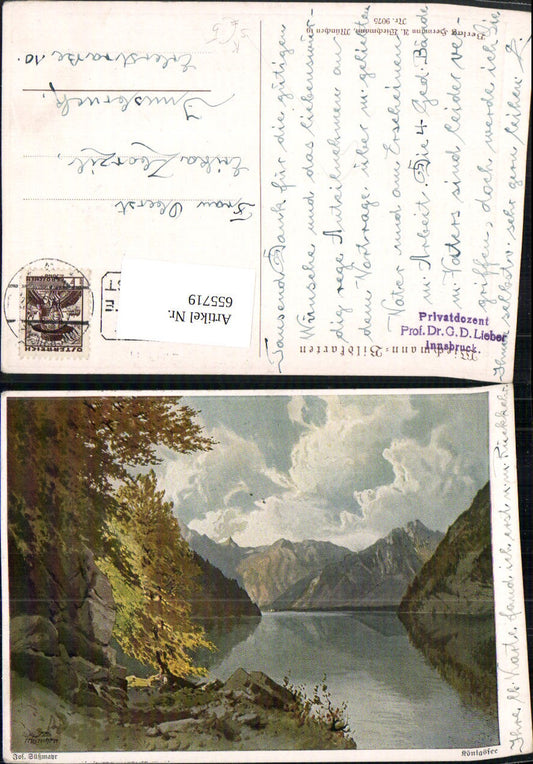 Tausend Dank für die gütigen
Wünsche und das liebenswür-
dig rege Anteilnehmen an
dem Vortrage über m. geliebten
Vater und am Erscheinen
m. Arbeit. Die 4 Ged. Bände
m. Vaters sind leider ver-
griffen, doch werde ich Sie
Ihnen selbstv. sehr gern leihen!
Ihre lb. Karte fand ich erst n. m. Rückkehr
Verlag Hermann A. Wiechmann, München 19
Nr. 9075
Wiechmann-Bildkarten
Frau Oberst
Erika
Innsbruck,
Erlerstraße 10.
ÖSTERREICH
Artikel Nr.
655719
Privatdozent
Prof. Dr. G. D. Lieber
Innsbruck.
Jos. Süßmayr
Königssee